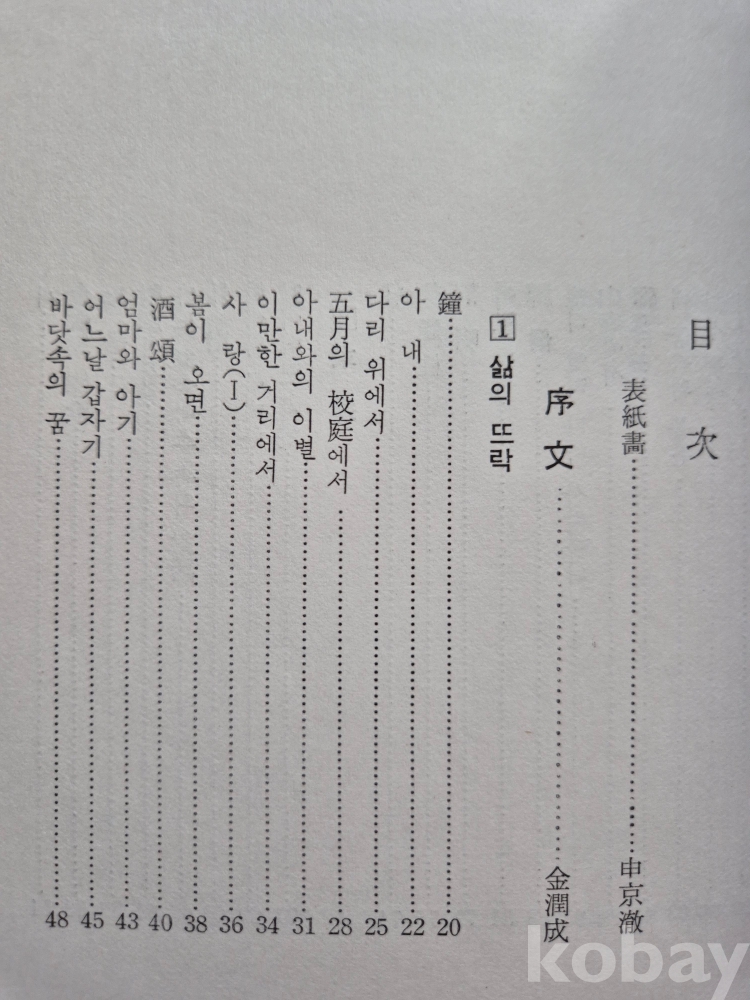 目 次
表紙畵 申京澈
序文 金潤成
1 삶의 뜨락
鐘 20
아 내 22
다리 위에서 25
五月의 校庭에서 28
아내와의 이별 31
이만한 거리에서 34
사 랑(I) 36
봄이 오면 38
酒 頌 40
엄마와 아기 43
어느날 갑자기 45
바닷속의 꿈 48
kobay